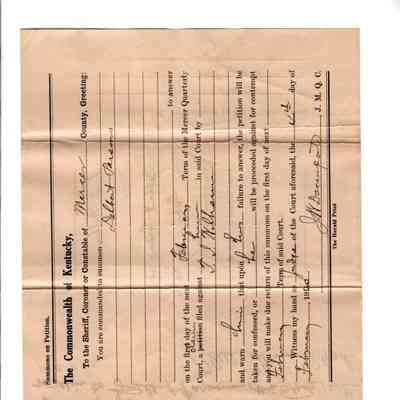 Summons on Petition.
The Commonwealth of Kentucky,
To the Sheriff, Coroner or Constable of Mercer County, Greeting:
You are commanded to summon Delbert Parsons
to answer
on the first day of the next February Term of the Mercer Quarterly
Court, a petition filed against him in said Court by
Williams
and warn him that upon his failure to answer, the petition will be
taken for confessed, or he will be proceeded against for contempt
and you will make due return of this summons on the first day of next
February Term of said Court.
Witness my hand as Judge of the Court aforesaid, the day of
February
J. M. Q. C.
The Herald Print